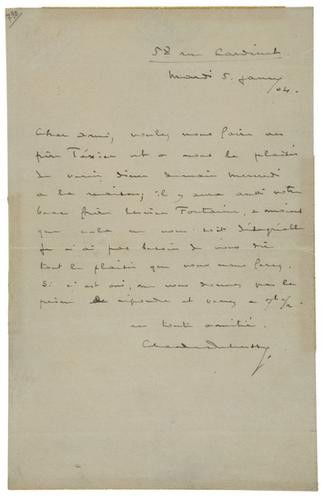 58 rue Cardinet.
Mardi 5. Janv/
04.
Cher ami, voulez vous faire au
père Texier et à nous le plaisir
de venir diner demain mercredi
à la maison; il y aura aussi votre
beau frère Lucien Fontaine, à moins
que cela ne vous soit désagréable
Je n'ai pas besoin de vous dire
tout le plaisir que vous nous ferez.
Si c'est oui, ne vous donnez pas la
peine de répondre et venez à 7h 1/2.
en toute amitié.
Claude Debussy